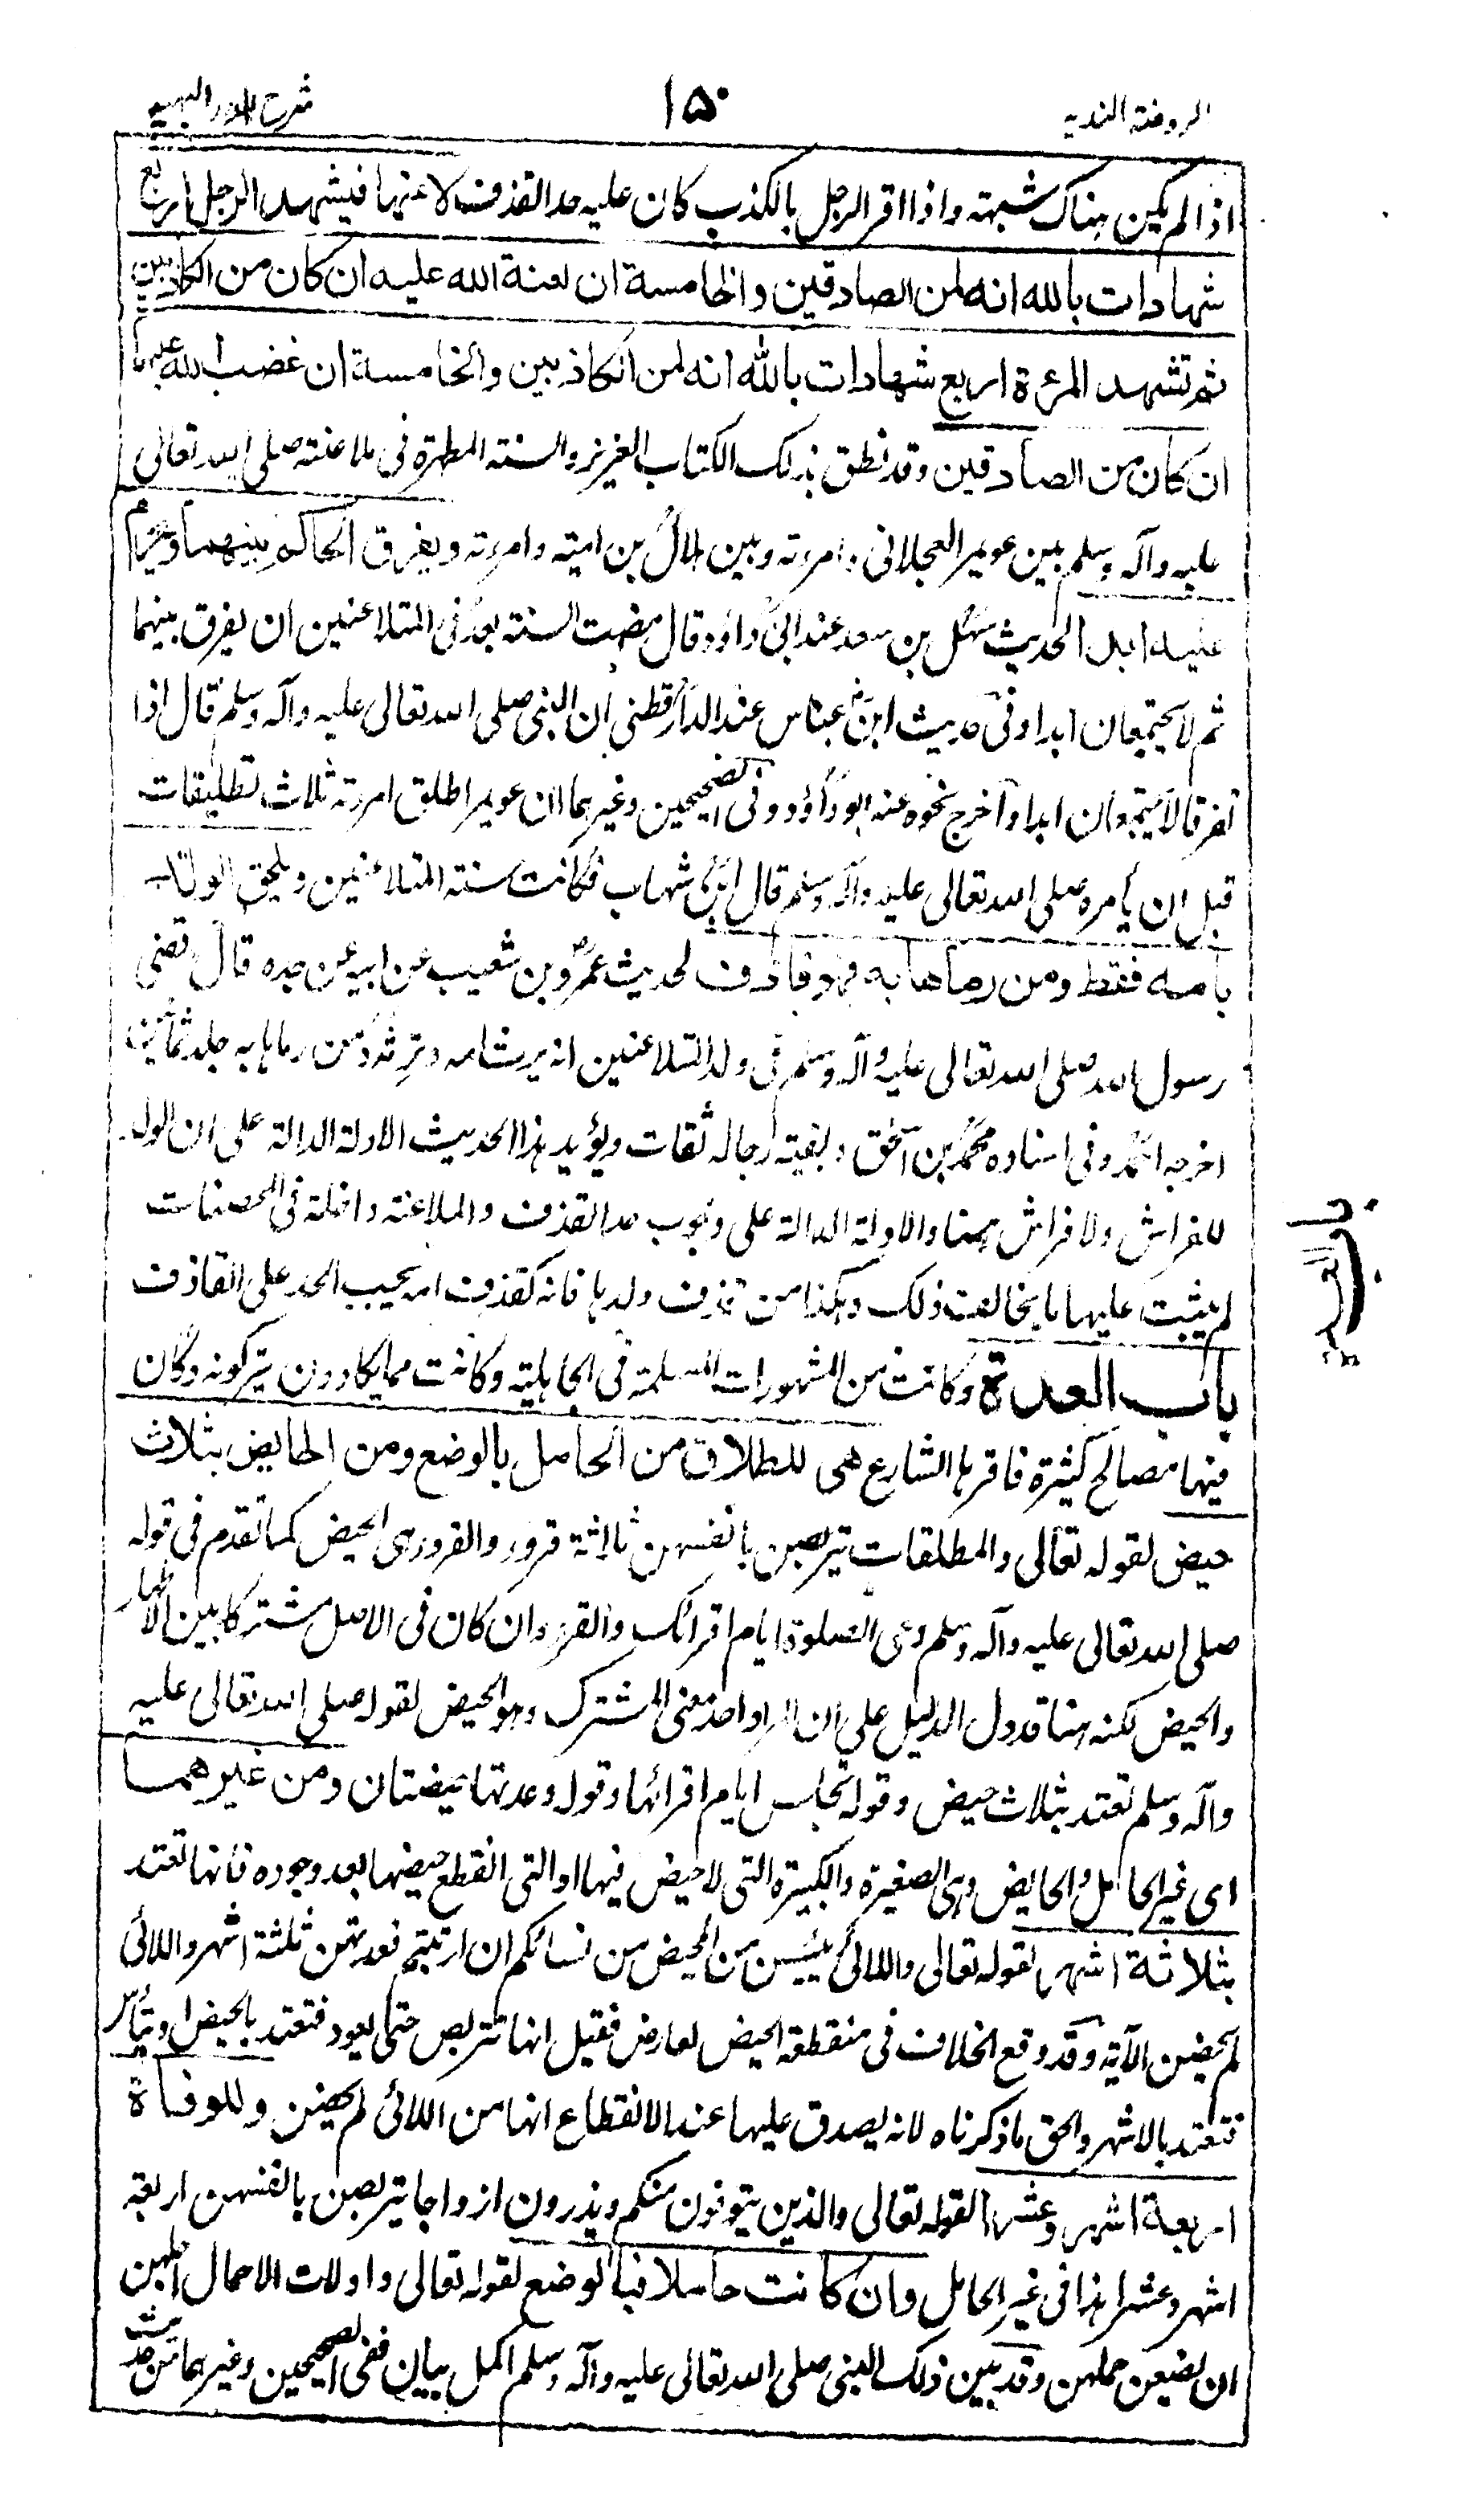 الروضة الندية
١٥٠
شرح الدرر البهية
اذا لم يكن هناك شبهة واذا اقر الرجل بالكذب كان عليه حد القذف لاعنها فيشهد الرجل اربع
شهادات بالله انه لمن الصادقين والخامسة ان لعنة الله عليه ان كان من الكاذبين
ثم تشهد المرءة اربع شهادات بالله انه لمن الكاذبين والخامسة ان غضب الله عليها
ان كان من الصادقين وقد نطق بذلك الكتاب العزيز والسنة المطهرة فى ملاعنته صلى الله تعالى
عليه وآله وسلم بين عويمر العجلانى وامرءته وبين هلال بن امية وامرءته ويفرق الحاكم بينهما وتحرم
عليه ابدا لحديث سهل بن سعد عند ابى داؤد قال مضت السنة بعد فى المتلاعنين ان يفرق بينهما
ثم لا يجتمعان ابدا وفى حديث ابن عباس عند الدارقطنى ان النبى صلى الله تعالى عليه وآله وسلم قال اذا
تفرقا لا يجتمعان ابدا واخرج نحوه عنه ابو داؤد وفى الصحيحين وغيرهما ان عويمرا طلق امرءته ثلاث تطليقات
قبل ان يأمره صلى الله تعالى عليه وآله وسلم قال ابن شهاب فكانت سنة المتلاعنين ويلحق الولد
بامه فقط ومن رماها به فهو قاذف لحديث عمرو بن شعيب عن ابيه عن جده قال قضى
رسول الله صلى الله تعالى عليه وآله وسلم فى ولد المتلاعنين انه يرث امه وترثه ومن رماها به جلد ثمانين
اخرجه احمد وفى اسناده محمد بن اسحق وبقية رجاله ثقات ويؤيد هذا الحديث الادلة الدالة على ان الولد
للفراش ولا فراش هنا والادلة الدالة على وجوب حد القذف والملاعنة داخلة فى المحصنات
لم يثبت عليها ما يخالف ذلك وهكذا من قذف ولدها فانه كقذف امه يجب الحد على القاذف
باب العدة وكانت من المشهورات المسلمة فى الجاهلية وكانت مما يكادون يتركونه وكان
فيها مصالح كثيرة فاقرها الشارع هى للطلاق من الحامل بالوضع ومن الحايض بثلاث
حيض لقوله تعالى والمطلقات يتربصن بانفسهن ثلاثة قروء والقروء هى الحيض كما تقدم فى قوله
صلى الله تعالى عليه وآله وسلم دعى الصلوة ايام اقرائك والقرء وان كان فى الاصل مشتركا بين الاطهار
والحيض لكنه هنا قد دل الدليل على ان المراد احد معنى المشترك وهو الحيض لقوله صلى الله تعالى عليه
وآله وسلم تعتد بثلاث حيض وقوله تجلس ايام اقرائها وقوله وعدتها حيضتان ومن غيرهما
اى غير الحامل والحايض وهى الصغيرة والكبيرة التى لا حيض فيها او التى انقطع حيضها بعد وجوده فانها تعتد
بثلاثة اشهر لقوله تعالى واللائى يئسن من المحيض من نسائكم ان ارتبتم فعدتهن ثلثة اشهر واللائى
لم يحضن الآية وقد وقع الخلاف فى منقطعة الحيض لعارض فقيل انها تتربص حتى يعود فتعتد بالحيض او تيأس
فتعتد بالاشهر والحق ما ذكرناه لانه يصدق عليها عند الانقطاع انها من اللائى لم يحضن وللوفاة
اربعة اشهر وعشرا لقوله تعالى والذين يتوفون منكم ويذرون ازواجا يتربصن بانفسهن اربعة
اشهر وعشرا هذا فى غير الحامل وان كانت حاملا فبالوضع لقوله تعالى واولات الاحمال اجلهن
ان يضعن حملهن وقد بين ذلك النبى صلى الله تعالى عليه وآله وسلم اكمل بيان ففى الصحيحين وغيرهما من حديث
باب العدة